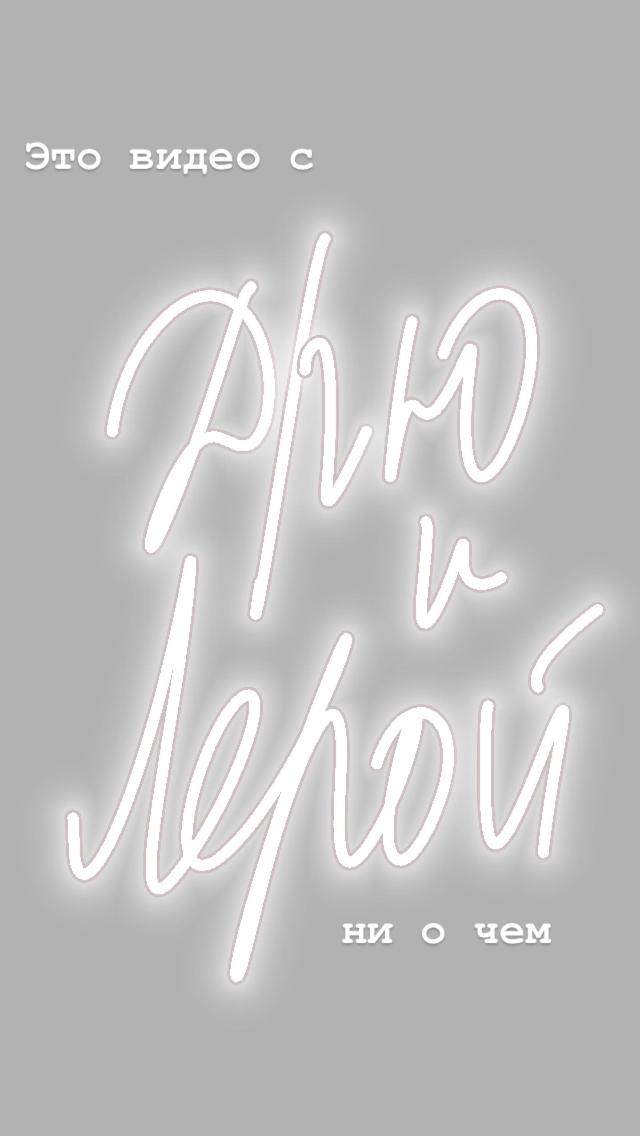 Это видео с
Дрю
и
Лерой
ни о чем